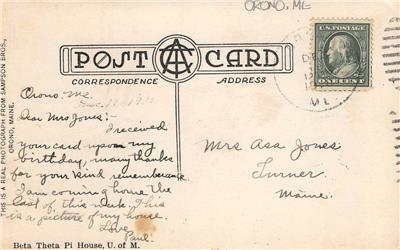 ORONO, ME
POST CARD
CORRESPONDENCE
ADDRESS
ONE CENT
ME.
THIS IS A REAL PHOTOGRAPH FROM SAMPSON BROS.,
ORONO, MAINE.
Orono, Me.
Dear Mrs Jones:-
I received
your card upon my
birthday, many thanks
for your kind remembrance
I am coming home the
last of this week. This
is a picture of my house.
Love
Paul.
Mrs Asa Jones
Turner
Maine.
Beta Theta Pi House, U. of M.